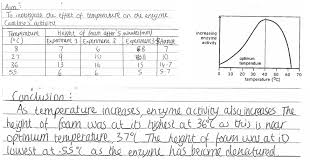 Aim:
To investigate the effect of temperature on the enzyme
activity
Temperature Height of foam after 5 minutes (mm)
(°C) Experiment 1 Experiment 2 Experiment 3
8 7 7 8 7
27 9 10 10
36 14 14·7
55 6 6 5 5·7
increasing
enzyme
activity
optimum
temperature
0 10 20 30 40 50 60 70
temperature (°C)
Conclusion:
As temperature increases, enzyme activity also increases. The
height of foam was at its highest at 36°C as this is near
optimum temperature, 37°C. The height of foam was at it's
lowest at 55°C as the enzyme has become denatured.